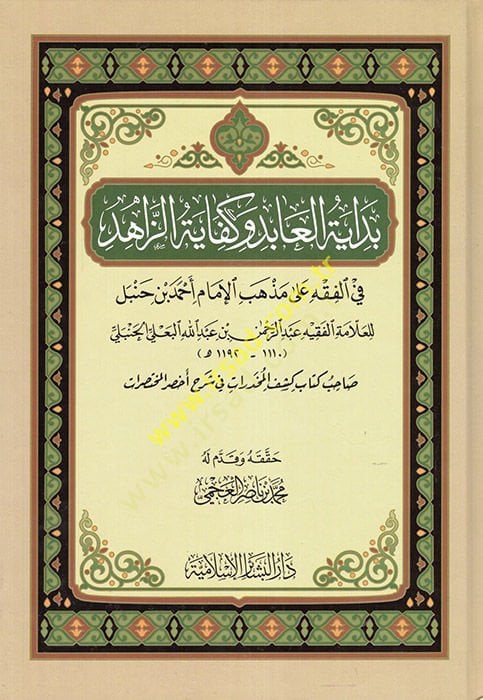 بداية العابد وكفاية الزاهد
في الفقه على مذهب الإمام أحمد بن حنبل
للعلامة الفقيه عبد الرحمن بن عبد الله البعلي الحنبلي
(١١١٠ - ١١٩٢ هـ)
صاحب كتاب كشف المخدرات في شرح أخصر المختصرات
حققه وقدم له
محمد بن ناصر العجمي
دار البشائر الإسلامية
www.irsad.com.tr